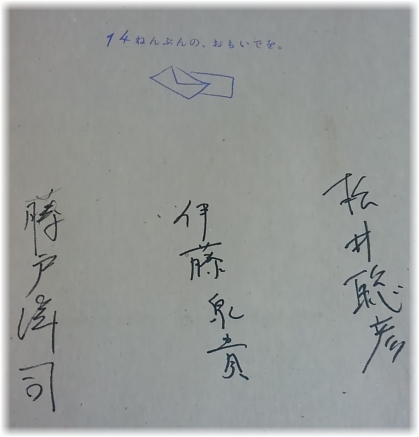 14ねんぶんの、おもいでを。
松井聡彦
伊藤泉貴
勝戸洋司